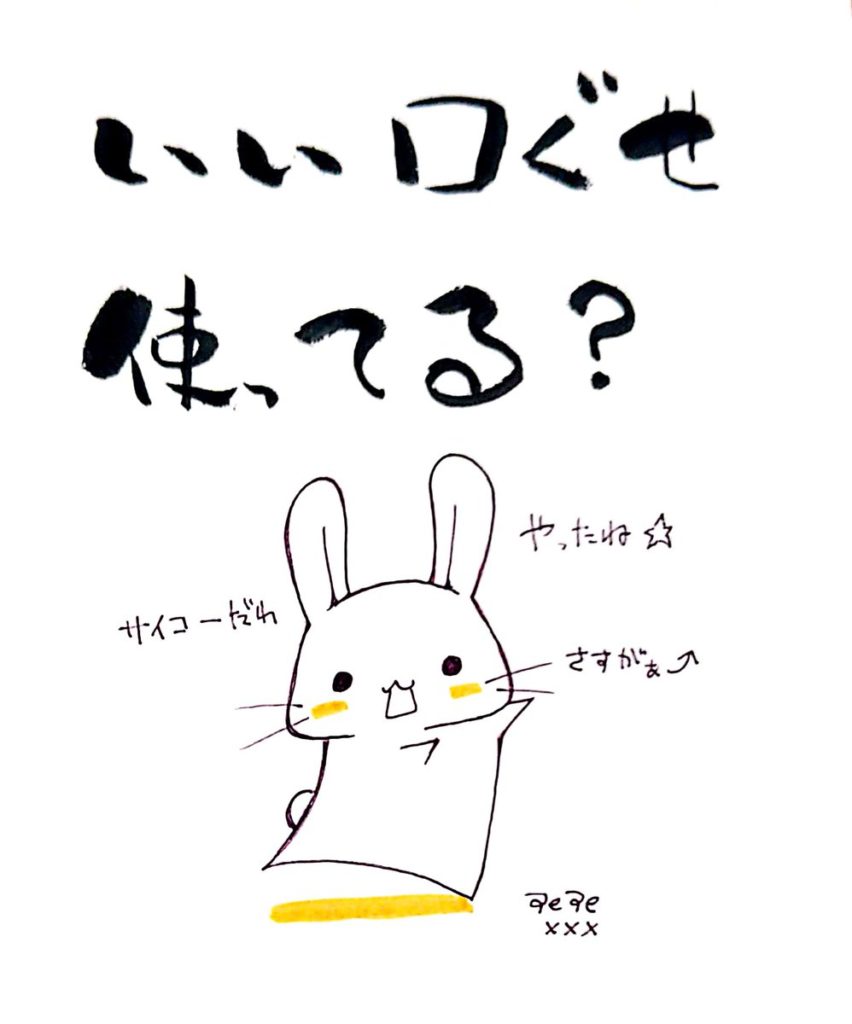 いい口ぐせ
使ってる?
やったね☆
サイコーだね
さすがぁ⤴
xxx